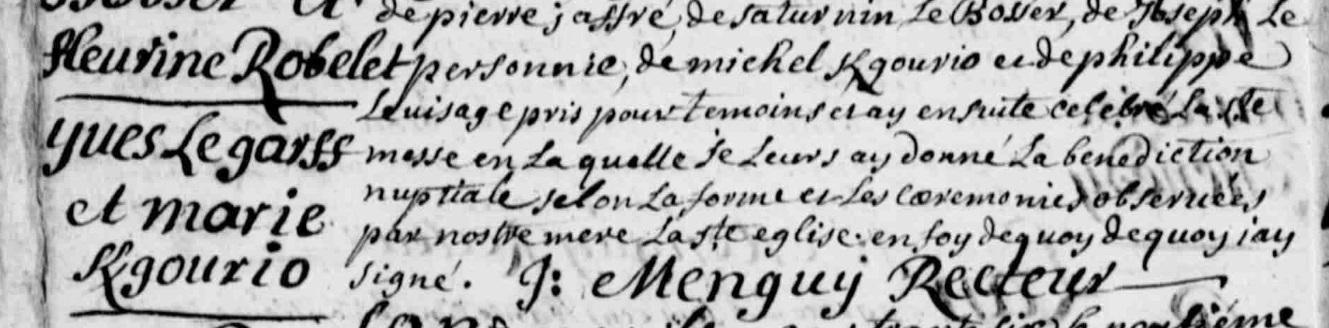 de pierre jaffré, de saturnin Le Bosser, de Joseph Le
fleurine Robelet personnic, de michel Kgourio et de philippe
Leuisage pris pour temoins et ay ensuite celébré La ste
yues Le garss messe en La quelle je Leurs ay donné La benediction
et marie nuptiale selon La forme et Les cæremonies obseruées
Kgourio par nostre mere La ste eglise. en foy dequoy dequoy jay
signé. J: Menguy Recteur